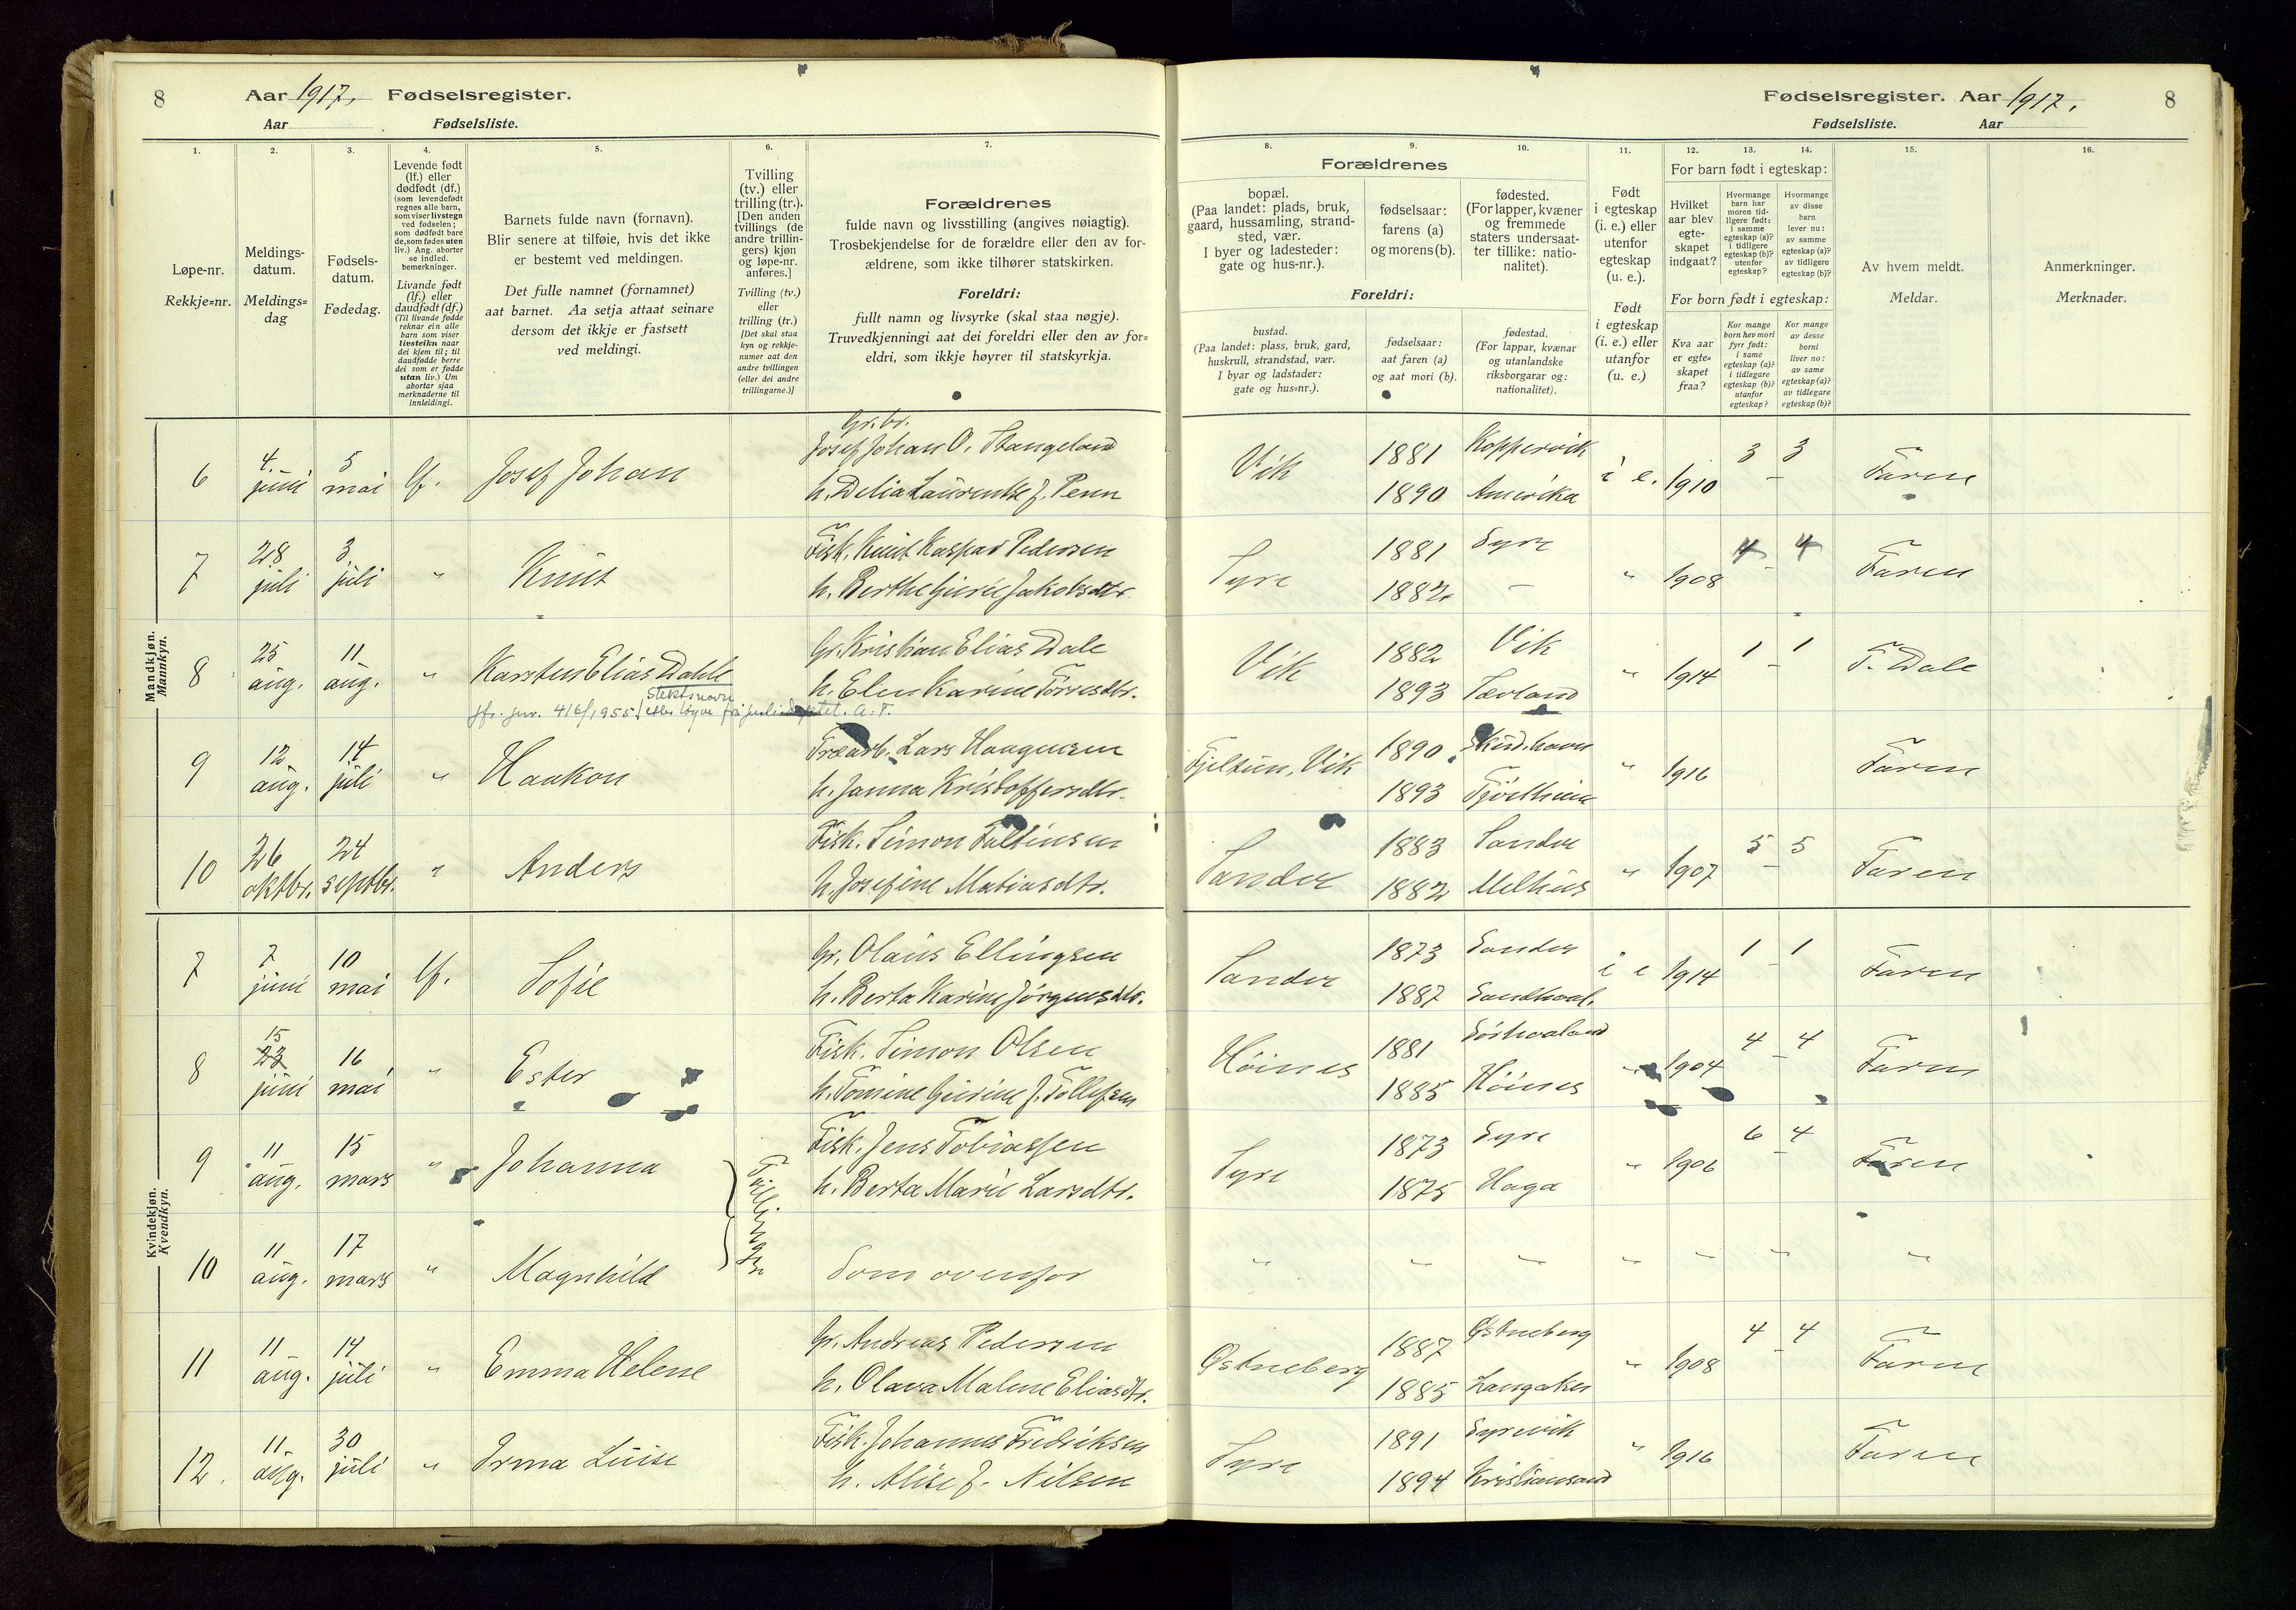 8
Aar 1917. Fødselsregister.
Aar Fødselsliste.
Fødselsregister. Aar 1917.
8
Fødselsliste. Aar
1.
2.
3.
4.
5.
6.
7.
8.
9.
10.
11.
12.
13.
14.
15.
16.
Løpe-nr.
Rekkje=nr.
Meldings-
datum.
Meldings=
dag
Fødsels-
datum.
Fødedag.
Levende født
(lf.) eller
dødfødt (df.)
(som levendefødt
regnes alle barn,
som viser livstegn
ved fødselen;
som dødfødt bare
de, som fødes uten
liv.) Ang. aborter
se indled.
bemerkninger.
Livande født
(lf.) eller
daudfødt (df.)
(Til livande fødde
reknar ein alle
barn som viser
livsteikn naar
dei kjem til; til
daudfødde berre
dei som er fødde
utan liv.) Um
abortar sjaa
merknaderne til
innleidingi.
Barnets fulde navn (fornavn).
Blir senere at tilføie, hvis det ikke
er bestemt ved meldingen.
Det fulle namnet (fornamnet)
aat barnet. Aa setja attaat seinare
dersom det ikkje er fastsett
ved meldingi.
Tvilling
(tv.) eller
trilling (tr.).
[Den anden
tvillings (de
andre trillin-
gers) kjøn
og løpe-nr.
anføres.]
Tvilling (tv.)
eller
trilling (tr.)
[Det skal staa
kyn og rekkje-
numer aat den
andre tvillingen
(eller dei andre
trillingarne.)]
Forældrenes
fulde navn og livsstilling (angives nøiagtig).
Trosbekjendelse for de forældre eller den av for-
ældrene, som ikke tilhører statskirken.
Foreldri:
fullt namn og livsyrke (skal staa nøgje).
Truvedkjenningi aat dei foreldri eller den av for=
eldri, som ikkje høyrer til statskyrkja.
Forældrenes
bopæl.
(Paa landet: plads, bruk,
gaard, hussamling, strand-
sted, vær.
I byer og ladesteder:
gate og hus-nr.).
fødselsaar:
farens (a)
og morens (b).
fødested.
(For lapper, kvæner
og fremmede
staters undersaat-
ter tillike: natio-
nalitet).
Foreldri:
bustad.
(Paa landet: plass, bruk, gard,
huskrull, strandstad, vær.
I byar og ladstader:
gate og hus=nr.).
fødselsaar:
aat faren (a)
og aat mori (b).
fødestad.
(For lappar, kvænar
og utanlandske
riksborgarar og:
nationalitet).
Født
i egteskap
(i. e.) eller
utenfor
egteskap
(u. e.).
Født
i egteskap
(i. e.) eller
utanfor
(u. e.)
For barn født i egteskap:
Hvilket
aar blev
egte-
skapet
indgaat?
Hvormange
barn har
moren tid-
ligere født:
i samme
egteskap (a)?
i tidligere
egteskap (b)?
utenfor
egteskap?
Hvormange
av disse
barn
lever nu:
av samme
egteskap (a)?
av tidligere
egteskap (b)?
For born født i egteskap:
Kva aar
er egte=
skapet
fraa?
Kor mange
born hev mori
fyrr født:
i same
egteskap (a)?
i tidlegare
egteskap (b)?
utanfor
egteskap?
Kor mange
av desse
borni
liver no:
av same
egteskap (a)?
av tidlegare
egteskap (b)?
Av hvem meldt.
Meldar.
Anmerkninger.
Merknader.
Mandkjøn.
Mannkyn.
6 4. juni 5 mai lf. Josef Johan Gr.br. Josef Johan O. Stangeland h. Delia Laurentse f. Penn Vik 1881 1890 Koppervik Amerika i e. 1910 3 - 3 Faren
7 28 juli 3 juli " Knut Fisk. Knut Kaspar Pedersen h. Berthe Gurie Jakobsdtr. Syre 1881 1882 Syre - " 1908 4 - 4 Faren
8 25 aug. 11 aug. " Karsten Elias Dahle Gr. Kristian Elias Dale h. Elen Karine Tørresdtr. Vik 1882 1893 Vik Sævland " 1914 1 - 1 F. Dale
slektsnavn
jfr. jnr. 416/1955 / etter løyve frå A.T.
9 12 aug. 14 juli " Haakon Træarb. Lars Haagensen h. Janna Kristoffersdtr. Fjeltun, Vik 1890 1893 Skud.havn Tjøstheim " 1916 Faren
10 26 oktbr. 24 septbr. " Anders Fisk. Simon Faltinsen h. Josefine Matiasdtr. Sandve 1883 1882 Sandve Melhus " 1907 5 - 5 Faren
Kvindekjøn.
Kvendkyn.
7 7 juni 10 mai lf. Sofie Gr. Olaus Ellingsen h. Berta Karine Jørgensdtr. Sandve 1873 1887 Sandve Sandhaal. i e 1914 1 - 1 Faren
8 15 23 juni 16 mai " Ester Fisk. Simon Olsen h. Tomine Gurine f. Tollefsen Høines 1881 1885 Sørhaaland Høines " 1904 4 - 4 Faren
9 11 aug. 15 mars " Johanna Tvillinger Fisk. Jens Tobiassen h. Berta Marie Larsdtr. Syre 1873 1875 Syre Haga " 1906 6 - 4 Faren
10 11 aug. 17 mars " Magnhild Som ovenfor " " " " " " "
11 11 aug. 14 juli " Emma Helene Gr. Andreas Pedersen h. Olava Malene Eliasdtr. Østneberg 1887 1885 Østneberg Langaker " 1908 4 - 4 Faren
12. 11 aug. 30 juli " Irma Luise Fisk. Johannes Fredriksen h. Alise f. Nilsen Syre 1891 1894 Syrevik Kristiansand " 1916 Faren